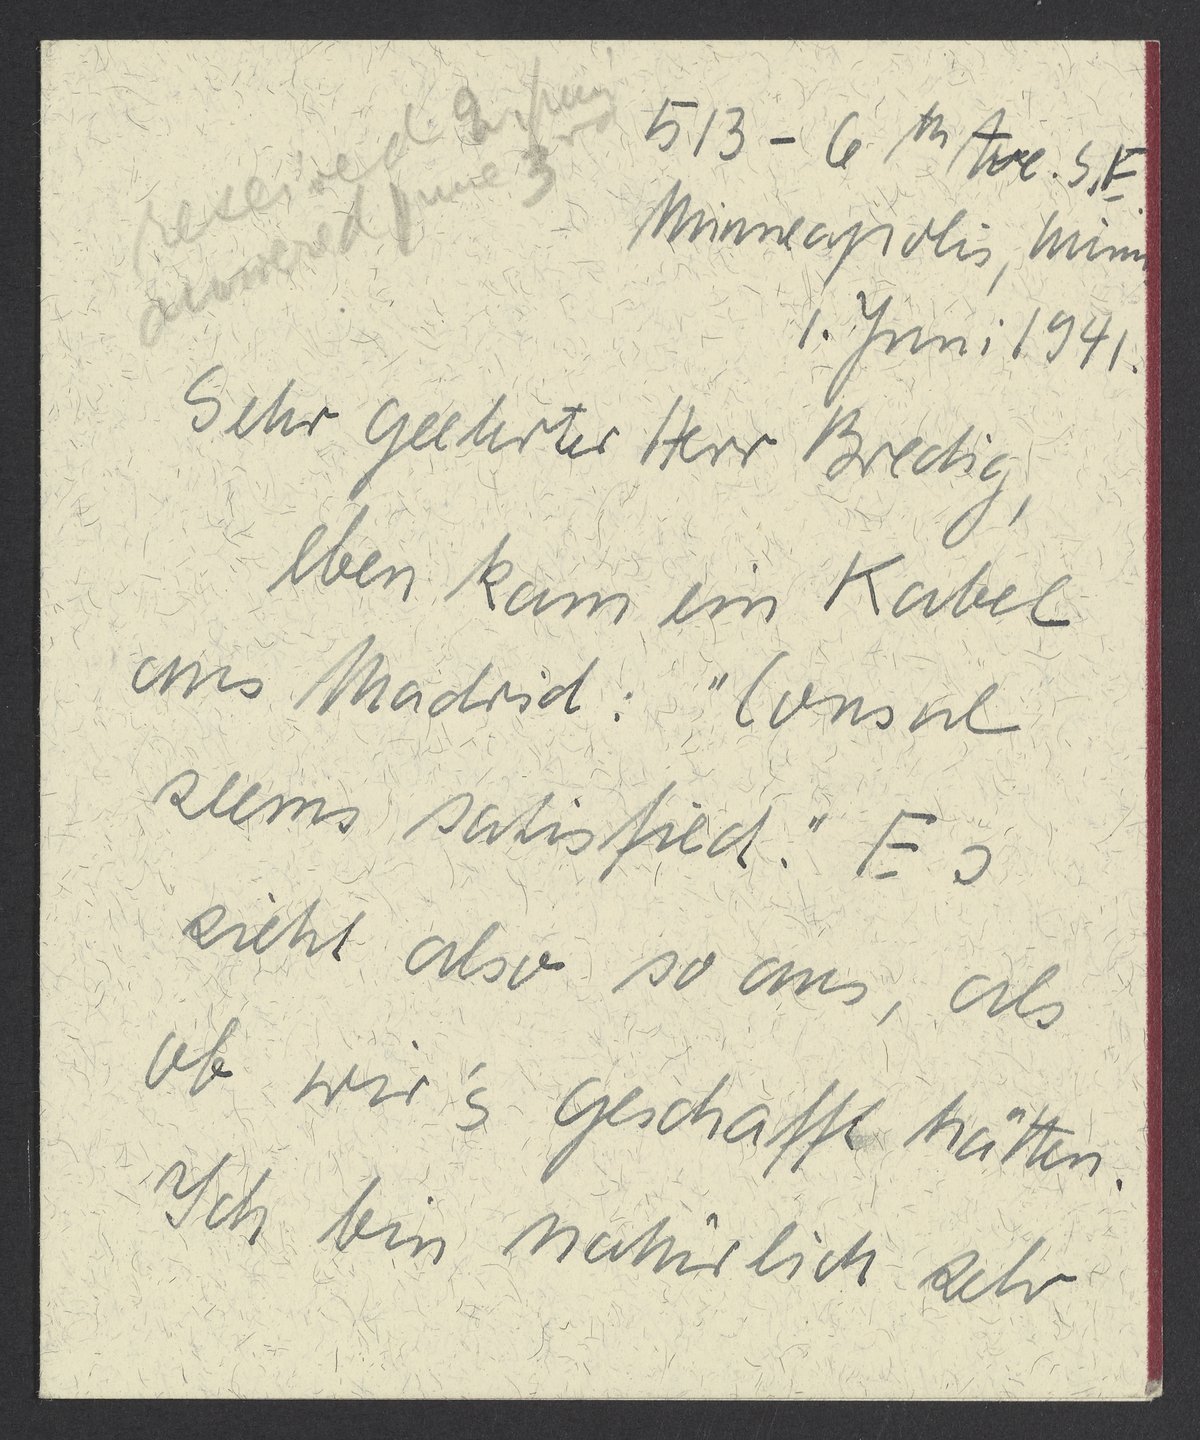 received 2. Juni
answered June 3rd
513 - 6th Ave. S.E.
Minneapolis, Minn
1. Juni 1941.
Sehr geehrter Herr Bredig,
eben kam ein Kabel
aus Madrid: "Consul
seems satisfied." Es
sieht also so aus, als
ob wir's geschafft hätten.
Ich bin natürlich sehr